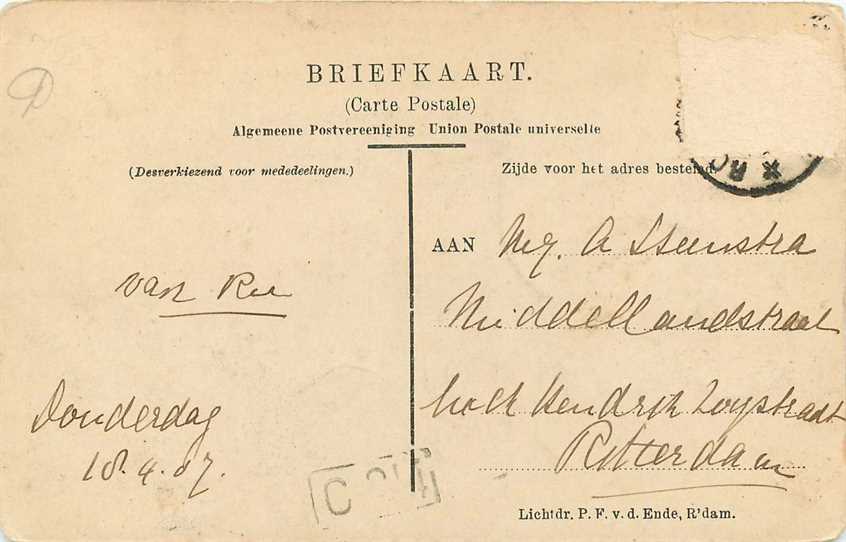 BRIEFKAART.
(Carte Postale)
Algemeene Postvereeniging Union Postale universelle
(Desverkiezend voor mededeelingen.)
Zijde voor het adres bestemd.
RO
AAN Mej. A Steenstra
Middellandstraat
hoek Hendrik Zoystraat
Rotterdam
van Ree
Donderdag
18.4.07.
Lichtdr. P. F. v. d. Ende, R'dam.